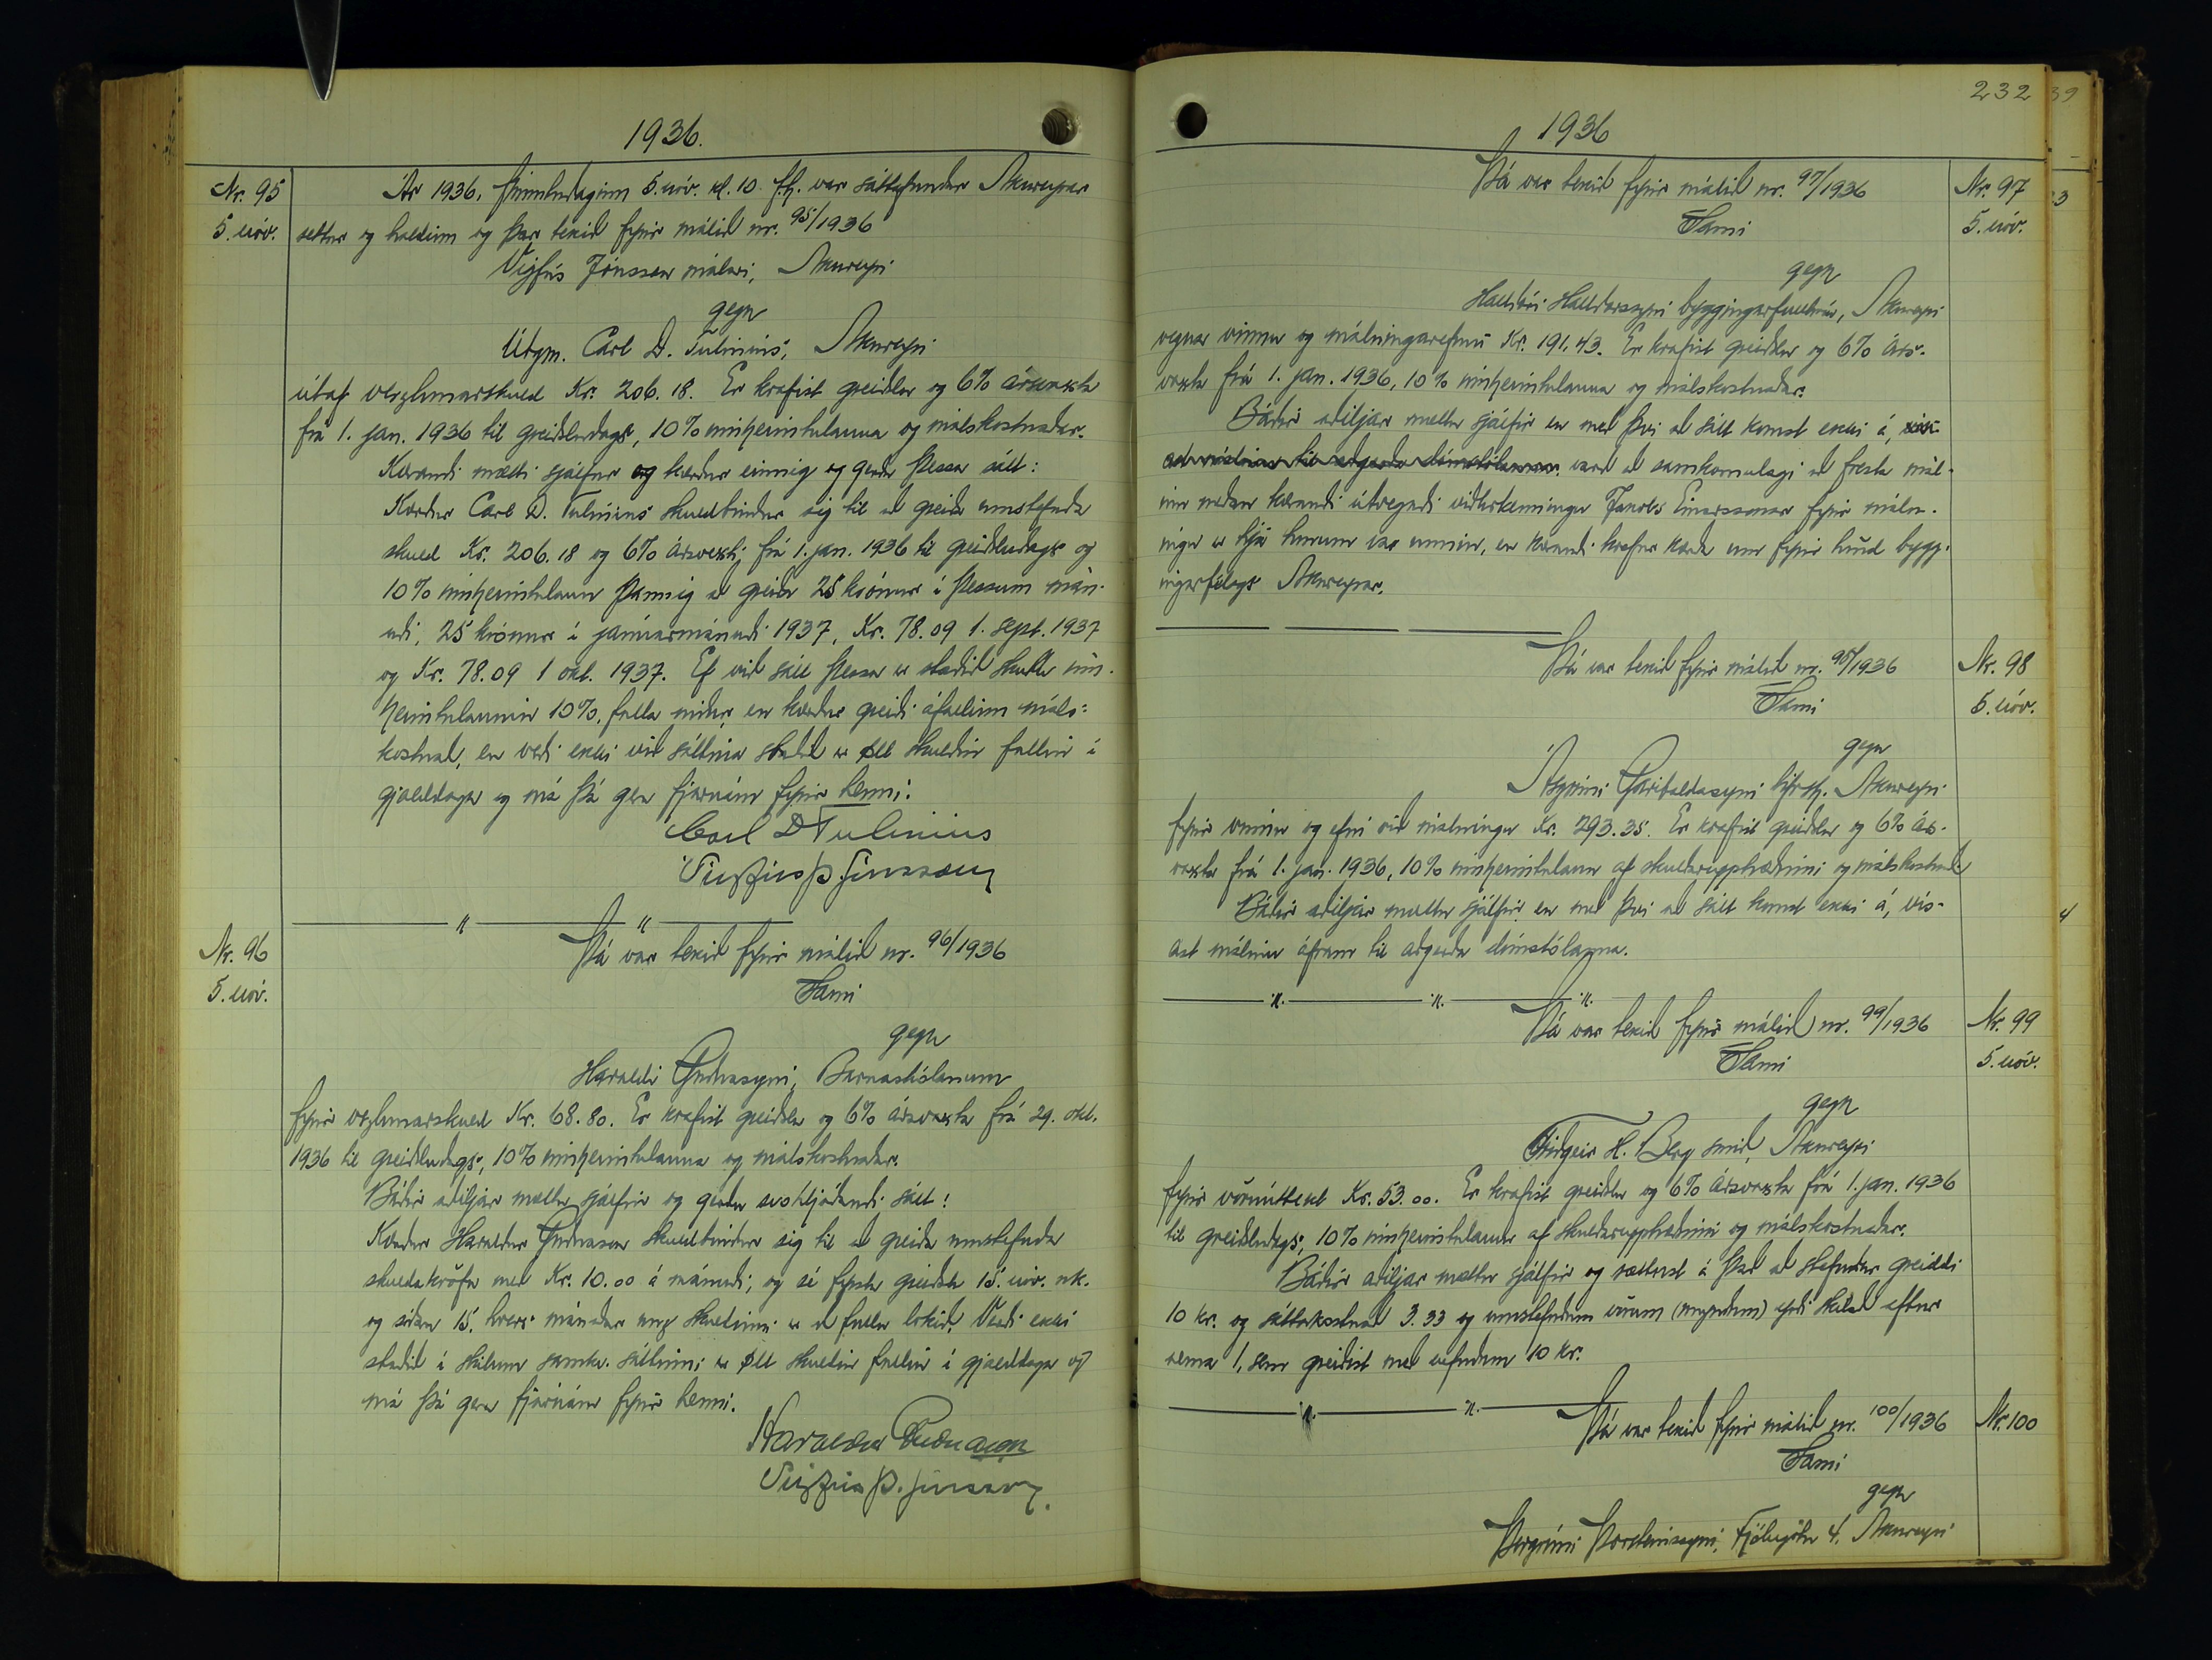 1936.
Nr. 95
5. nóv.
Ár 1936, fimmtudaginn 5. nóv. kl. 10 f.h. var sáttafundur Akureyrar
settur og haldinn og þar tekið fyrir málið nr. 95/1936
Vigfús Jónsson málari, Akureyri
gegn
Útgm. Carl D. Tulinius, Akureyri
útaf verzlunarskuld Kr. 206.18. Er krafist greiðslu og 6% ársvaxta
frá 1. jan. 1936 til greiðsludags, 10% innheimtulauna og málskostnaðar.
Kærandi mætti sjálfur og kærður einnig og gerðu þessa sátt:
Kærður Carl D. Tulinius skuldbindur sig til að greiða umstefnda
skuld Kr. 206.18 og 6% ársvexti frá 1. jan. 1936 til greiðsludags og
10% innheimtulaun þannig að greiða 25 krónur í þessum mán-
uði, 25 krónur í janúarmánuði 1937, Kr. 78.09 1. sept. 1937
og Kr. 78.09 1 okt. 1937. Ef við sátt þessa er staðið skulu inn-
heimtulaunin 10%, falla niður en kærður greiði áfallinn máls-
kostnað, en verði ekki við sáttina staðið er öll skuldin fallin í
gjalddaga og má þá gera fjárnám fyrir henni.
Carl D Tulinius
Vigfús Þ. Jónsson
Nr. 96
5. nóv.
Þá var tekið fyrir málið nr. 96/1936
Sami
gegn
Haraldi Guðnasyni, Barnaskólanum
fyrir verzlunarskuld Kr. 68.80. Er krafist greiðslu og 6% ársvaxta frá 29. okt.
1936 til greiðsludags, 10% innheimtulauna og málskostnaðar.
Báðir aðiljar mættu sjálfir og gerðu svohljóðandi sátt:
Kærður Haraldur Guðnason skuldbindur sig til að greiða umstefnda
skuldakröfu með Kr. 10.00 á mánuði, og sé fyrsta greiðsla 15. nóv. nk.
og síðan 15. hvers mánaðar unz skuldinni er að fullu lokið. Verði ekki
staðið í skilum samkv. sáttinni er öll skuldin fallin í gjalddaga og
má þá gera fjárnám fyrir henni.
Haraldur Guðnason
Vigfús Þ. Jónsson.
232
1936
Þá var tekið fyrir málið nr. 97/1936
Nr. 97
5. nóv.
Sami
gegn
Halldóri Halldórssyni byggingarfulltrúa, Akureyri
vegna vinnu og málningarefnis Kr. 191.43. Er krafist greiðslu og 6% árs-
vaxta frá 1. jan. 1936, 10% innheimtulauna og málskostnaðar.
Báðir aðiljar mættu sjálfir en með því að sátt komst ekki á, vís-
ast málinu til aðgerða dómstólanna. varð að samkomulagi að fresta mál-
inu meðan kærandi útvegaði viðurkenningu Jakobs Einarssonar fyrir máln-
ingu er hjá honum var unnin, en kærandi krefur kærða um fyrir hönd bygg-
ingarfélags Akureyrar.
Þá var tekið fyrir málið nr. 98/1936
Nr. 98
5. nóv.
Sami
gegn
Ásgrími Garibaldasyni bifrstj. Akureyri
fyrir vinnu og efni við málningu Kr. 293.35. Er krafist greiðslu og 6% árs-
vaxta frá 1. jan. 1936, 10% innheimtulaun af skuldarupphæðinni og málskostnað
Báðir aðiljar mættu sjálfir en með því að sátt komst ekki á, vís-
ast málinu áfram til aðgerða dómstólanna.
Þá var tekið fyrir málið nr. 99/1936
Nr. 99
5. nóv.
Sami
gegn
Friðgeir H. Berg smið, Akureyri
fyrir vöruúttekt Kr. 53.00. Er krafist greiðslu og 6% ársvaxta frá 1. jan. 1936
til greiðsludags, 10% innheimtulauna af skuldarupphæðinni og málskostnaðar.
Báðir aðiljar mættu sjálfir og sættust á það að stefndur greiddi
10 kr. og sáttakostnað 3.33 og umstefndum vörum (myndum) yrði skilað aftur
nema 1, sem greidist með nefndum 10 kr.
Þá var tekið fyrir málið nr. 100/1936
Nr. 100
Sami
gegn
Þorgrími Þorsteinssyni, Fjólugötu 4, Akureyri